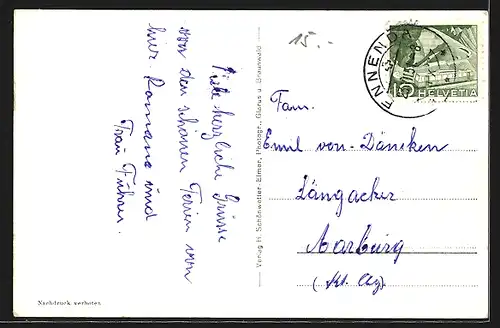 Viele herzliche Grüsse
von den schönen Ferien von
hier. Romane und
Frau Führer.
Nachdruck verboten
Verlag H. Schönwetter-Elmer, Photogr., Glarus u. Braunwald
15.-
ENNENDA
5
HELVETIA
Fam.
Emil von Däniken
Längacker
Aarburg
(Kt. Arg.)